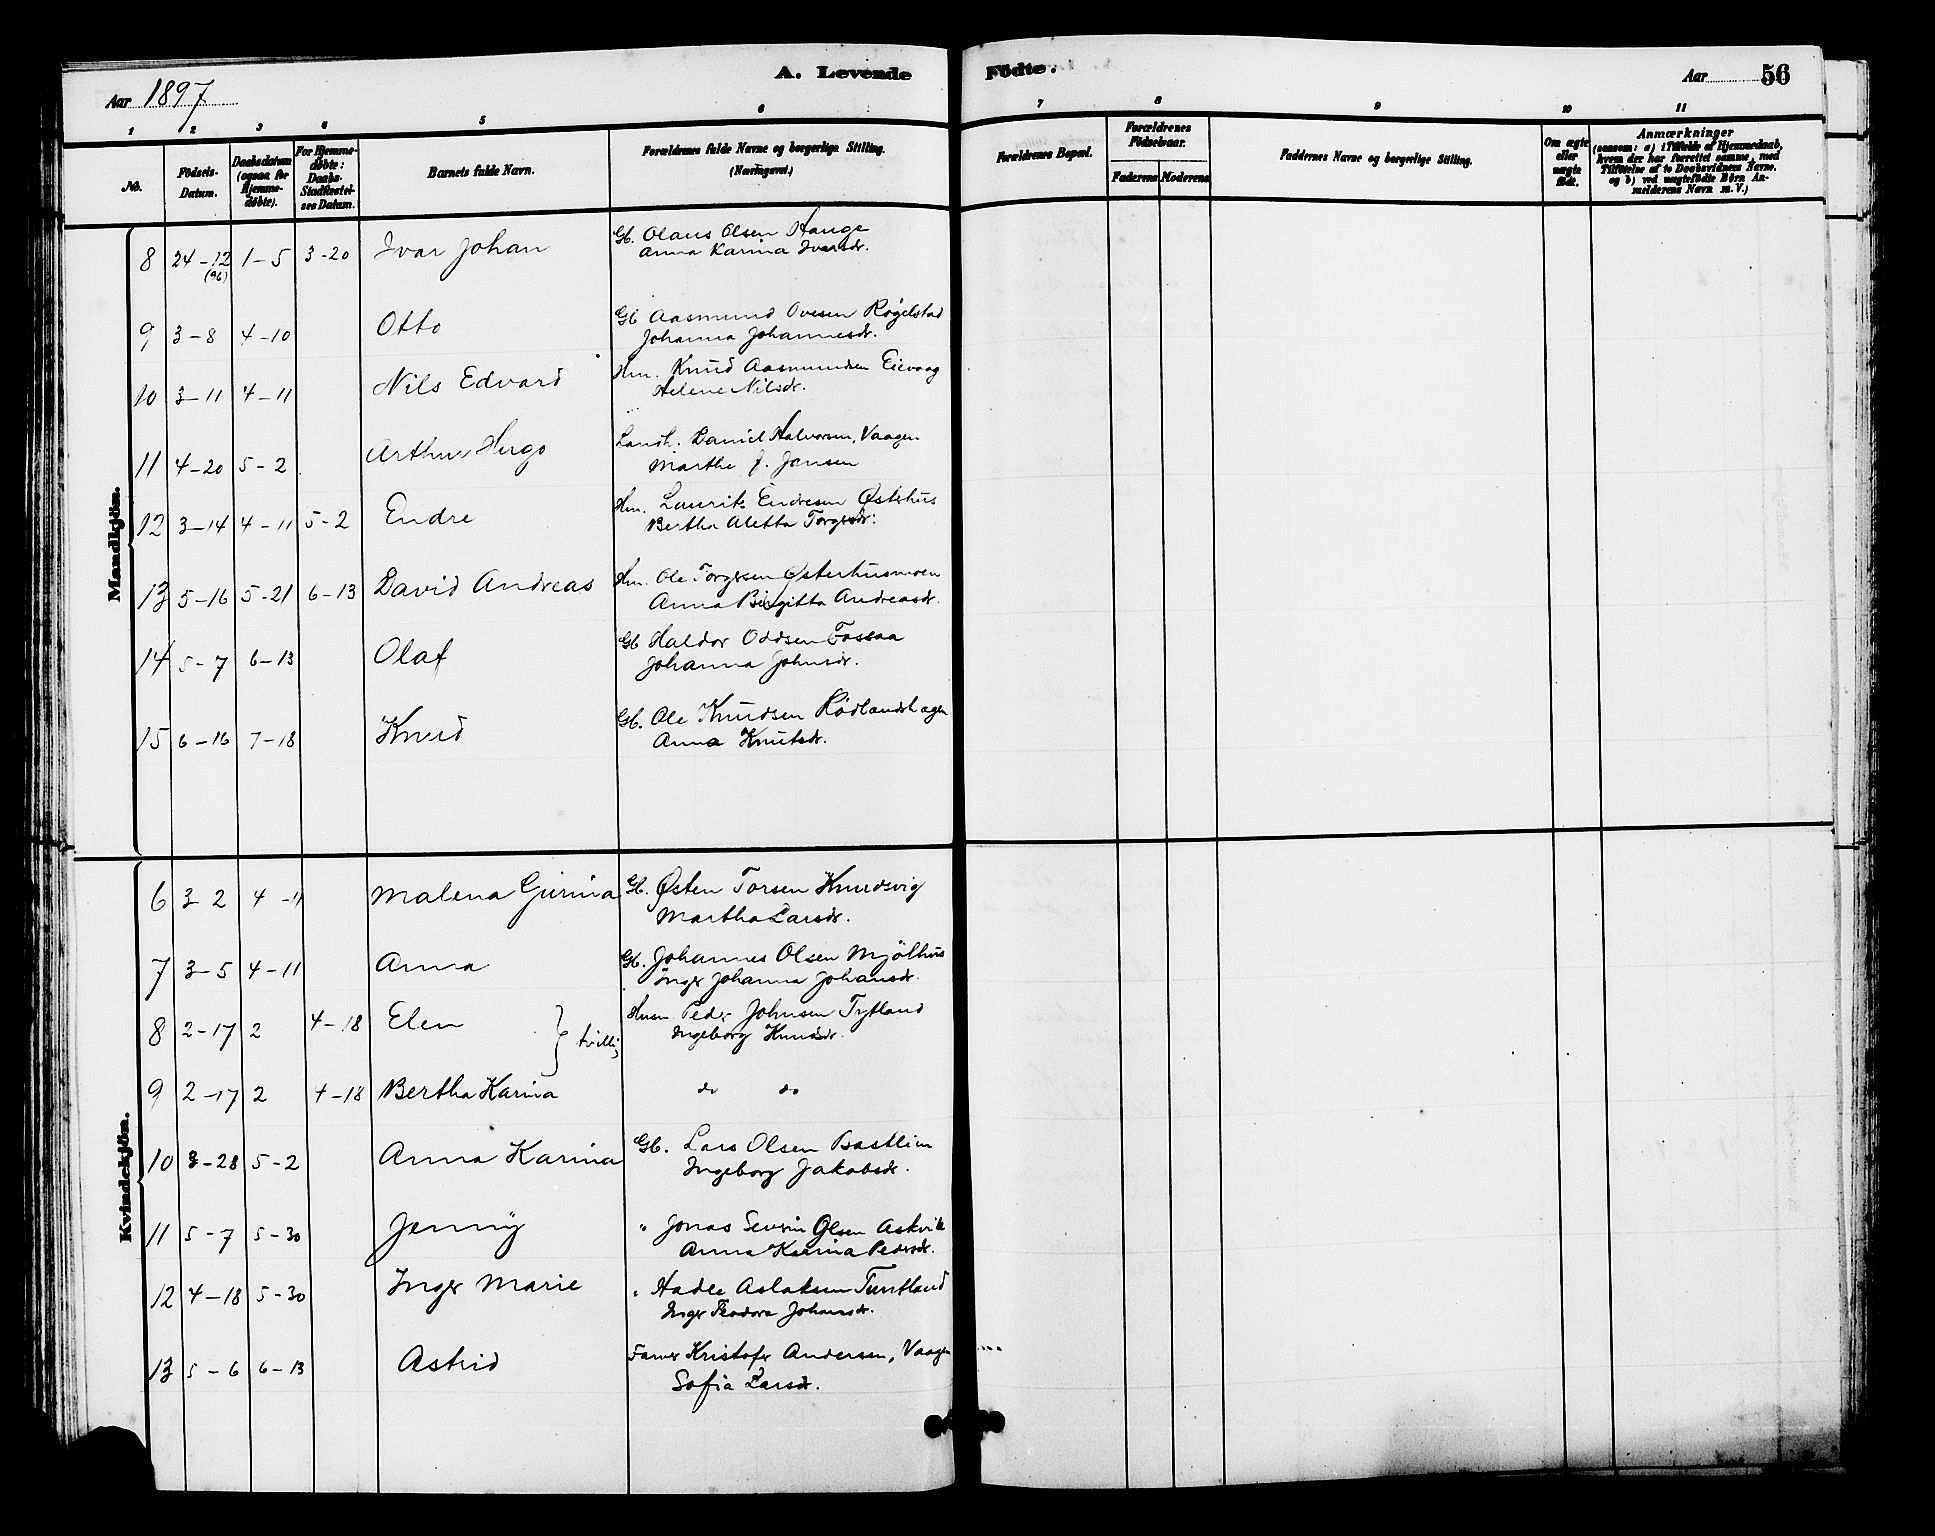 A. Levende Födte.
Aar 1897
Aar 56
1 2 3 4 5 6 7 8 9 10 11
No.
Födsels-Datum.
Daabsdatum (ogsaa for Hjemme-døbte).
For Hjemme-døbte: Daabs-Stadfæstel-ses Datum.
Barnets fulde Navn.
Forældrenes fulde Navne og borgerlige Stilling. (Næringsvei.)
Forældrenes Bopæl.
Forældrenes Födselsaar.
Faderens Moderens
Faddernes Navne og borgerlige Stilling.
Om ægte eller uægte født.
Anmærkninger
(saasom: a) i Tilfælde af Hjemmedaab, hvem der har forrettet samme, med Tilföielse af to Daabsvidners Navne. og b) ved uægtefödte Börn An-melderens Navn m. V.)
Mandkjön.
8 24-12 (96) 1-5 3-20 Ivar Johan Gb. Olaus Olsen Hauge
Anna Karina Ivarsdr.
9 3-8 4-10 Otto Gb Aasmund Ovesen Røgelstad
Johanna Johannesdr.
10 3-11 4-11 Nils Edvard Hm. Knud Aasmundsen Eievaag
Helene Nilsdr.
11 4-20 5-2 Arthur Hugo Landh. Daniel Halvorsen, Vaagen
Marthe J. Jansen
12 3-14 4-11 5-2 Endre Hm. Laurits Endresen Østerhus
Bertha Aletta Torgersdr.
13 5-16 5-21 6-13 David Andreas Hm. Ole Torgersen Østerhusmoen
Anna Birgitta Andreasdr.
14 5-7 6-13 Olaf Gb Haldor Oddsen Fossaa
Johanna Johnsdr.
15 6-16 7-18 Knud Gb. Ole Knudsen Rödlandshagen
Anna Knutsdr.
Kvindekjön.
6 3-2 4-11 Malena Gurina Gb. Østen Torsen Knudsvig
Martha Larsdr.
7 3-5 4-11 Anna Gb. Johannes Olsen Mjölhus
Inger Johanna Johansdr.
8 2-17 2 4-18 Elen } tvilli Husm. Peder Johnsen Tytland
Ingeborg Knudsdr.
9 2-17 2 4-18 Bertha Karina do do
10 3-28 5-2 Anna Karina Gb. Lars Olsen Bastlien
Ingeborg Jakobsdr.
11 5-7 5-30 Jenny " Jonas Severin Olsen Askvik
Anna Karina Pedersdr.
12 4-18 5-30 Inger Marie " Hadle Aslaksen Tuntland
Inger Teodora Johansdr.
13 5-6 6-13 Astrid Farver Kristofer Andersen, Vaagen
Sofia Larsdr.